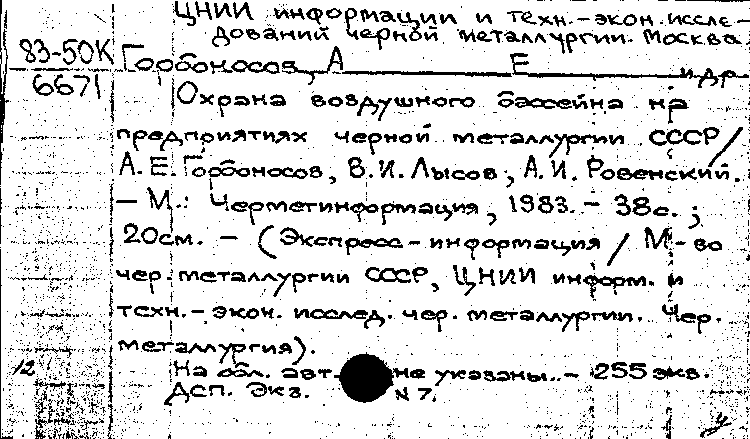 ЦНИИ информации и техн.-экон. иссле-
дований черной металлургии. Москва.
83-50К
6671
Горбоносов, А Е и др
Охрана воздушного бассейна на
предприятиях черной металлургии СССР/
А.Е. Горбоносов, В.И. Лысов, А.И. Ровенский.
– М.: Черметинформация, 1983. – 38с. ;
20см. – (Экспресс-информация / М-во
чер. металлургии СССР, ЦНИИ информ. и
техн.-экон. исслед. чер. металлургии. Чер.
металлургия).
12
На обл. авт. не указаны. – 255 экз.
ДСП. Экз. N 7.